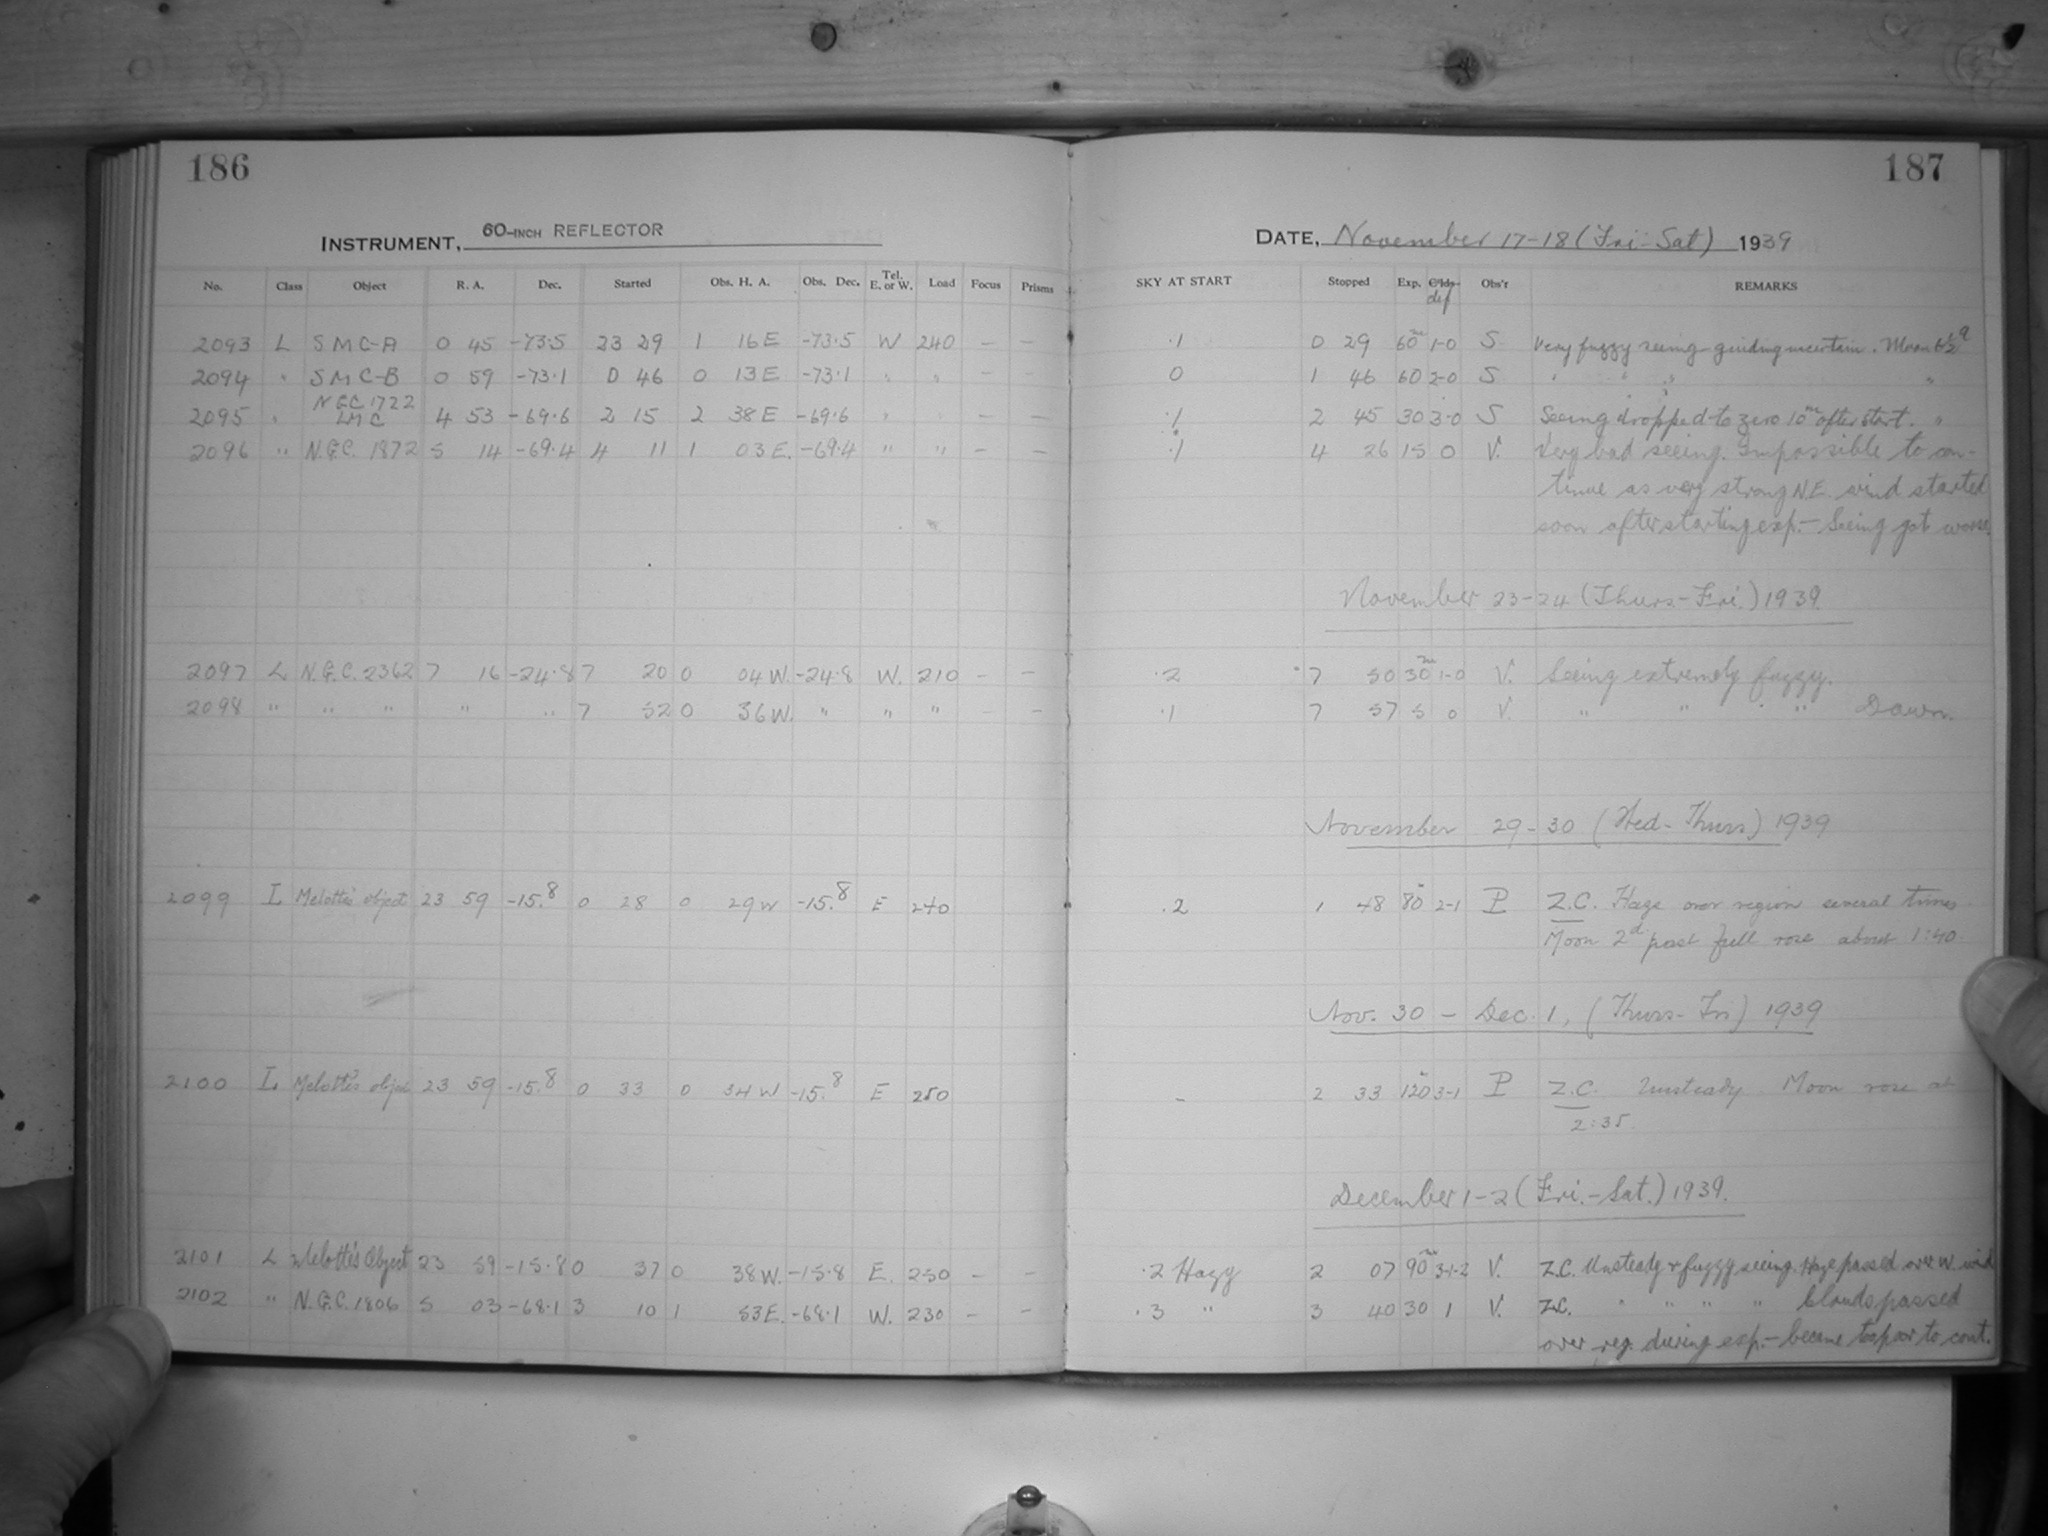 186
187
INSTRUMENT, 60-INCH REFLECTOR
DATE, November 17-18 (Fri-Sat) 1939
No. Class Object R. A. Dec. Started Obs. H. A. Obs. Dec. Tel. E. or W. Load Focus Prisms SKY AT START Stopped Exp. def Obs'r REMARKS
2093 L SMC-A 0 45 -73.5 23 29 1 16 E -73.5 W 240 – – .1 0 29 60m 1-0 S Very fuzzy seeing - guiding uncertain. Moon
2094 " SMC-B 0 59 -73.1 0 46 0 13 E -73.1 " " – – 0 1 46 60 2-0 S " " " "
2095 " NGC 1722 LMC 4 53 -69.6 2 15 2 38 E -69.6 " " – – .1 2 45 30 3-0 S Seeing dropped to zero 10m after start. "
2096 " N.G.C. 1872 5 14 -69.4 4 11 1 03 E. -69.4 " " – – .1 4 26 15 0 V. Very bad seeing. Impossible to con-
tinue as very strong N.E. wind started
soon after starting exp.- Seeing got worse.
November 23-24 (Thurs-Fri.) 1939.
2097 L N.G.C. 2362 7 16 -24.8 7 20 0 04 W. -24.8 W. 210 – – .2 7 50 30m 1-0 V. Seeing extremely fuzzy.
2098 " " " " " 7 52 0 36 W. " " " – – .1 7 57 5 0 V. " " " Dawn.
November 29-30 (Wed-Thurs) 1939
2099 L Melotte's object 23 59 -15.8 0 28 0 29 W -15.8 E 240 .2 1 48 80m 2-1 P Z.C. Haze over region several times
Moon 2d past full rose about 1:40.
Nov. 30 - Dec. 1, (Thurs-Fri) 1939
2100 L Melotte's object 23 59 -15.8 0 33 0 34 W -15.8 E 250 – 2 33 120m 3-1 P Z.C. Unsteady Moon rose at
2:35.
December 1-2 (Fri.-Sat.) 1939.
2101 L Melotte's Object 23 59 -15.8 0 37 0 38 W. -15.8 E. 250 – – .2 Hazy 2 07 90m 3-1-2 V. Z.C. Unsteady & fuzzy seeing. Haze passed over W. wind
2102 " N.G.C. 1806 5 03 -68.1 3 10 1 53 E. -68.1 W. 230 – – .3 " 3 40 30 1 V. Z.C. " " " " Clouds passed
over reg. during exp.- became too poor to cont.